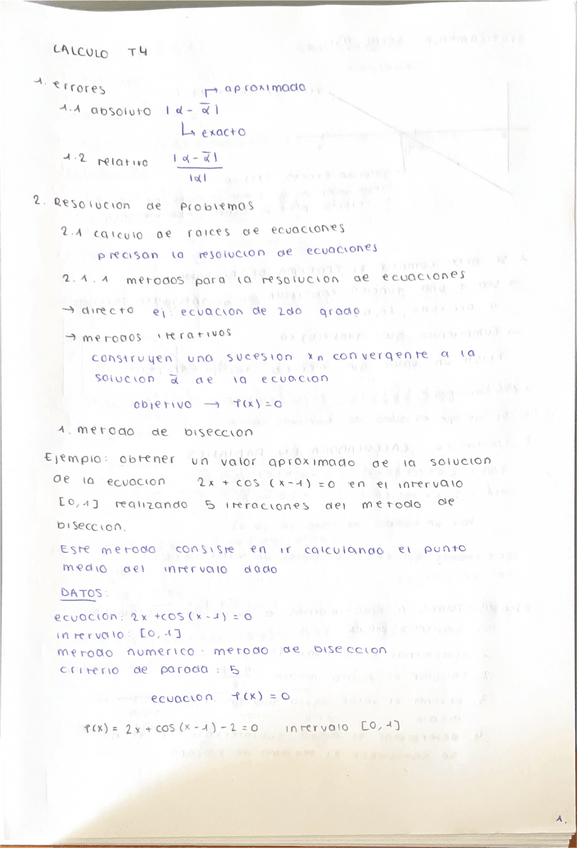 CALCULO T4
1. errores
aproximado
1.1 absoluto |α - ᾱ|
exacto
1.2 relativo |α - ᾱ| / |α|
2. Resolucion de problemas
2.1 calculo de raices de ecuaciones
precisan la resolucion de ecuaciones
2.1.1 metodos para la resolucion de ecuaciones
→ directo ej: ecuacion de 2do grado
→ metodos iterativos
construyen una sucesion xn convergente a la
solucion ᾱ de la ecuacion
objetivo → f(x)=0
1. metodo de biseccion
Ejemplo: obtener un valor aproximado de la solucion
de la ecuacion 2x + cos (x-1)=0 en el intervalo
[0,1] realizando 5 iteraciones del metodo de
biseccion.
Este metodo consiste en ir calculando el punto
medio del intervalo dado
DATOS:
ecuacion: 2x +cos(x-1)=0
intervalo: [0,1]
metodo numerico: metodo de biseccion
criterio de parada: 5
ecuacion f(x)=0
f(x)= 2x+cos(x-1)-2=0 intervalo [0,1]
1.